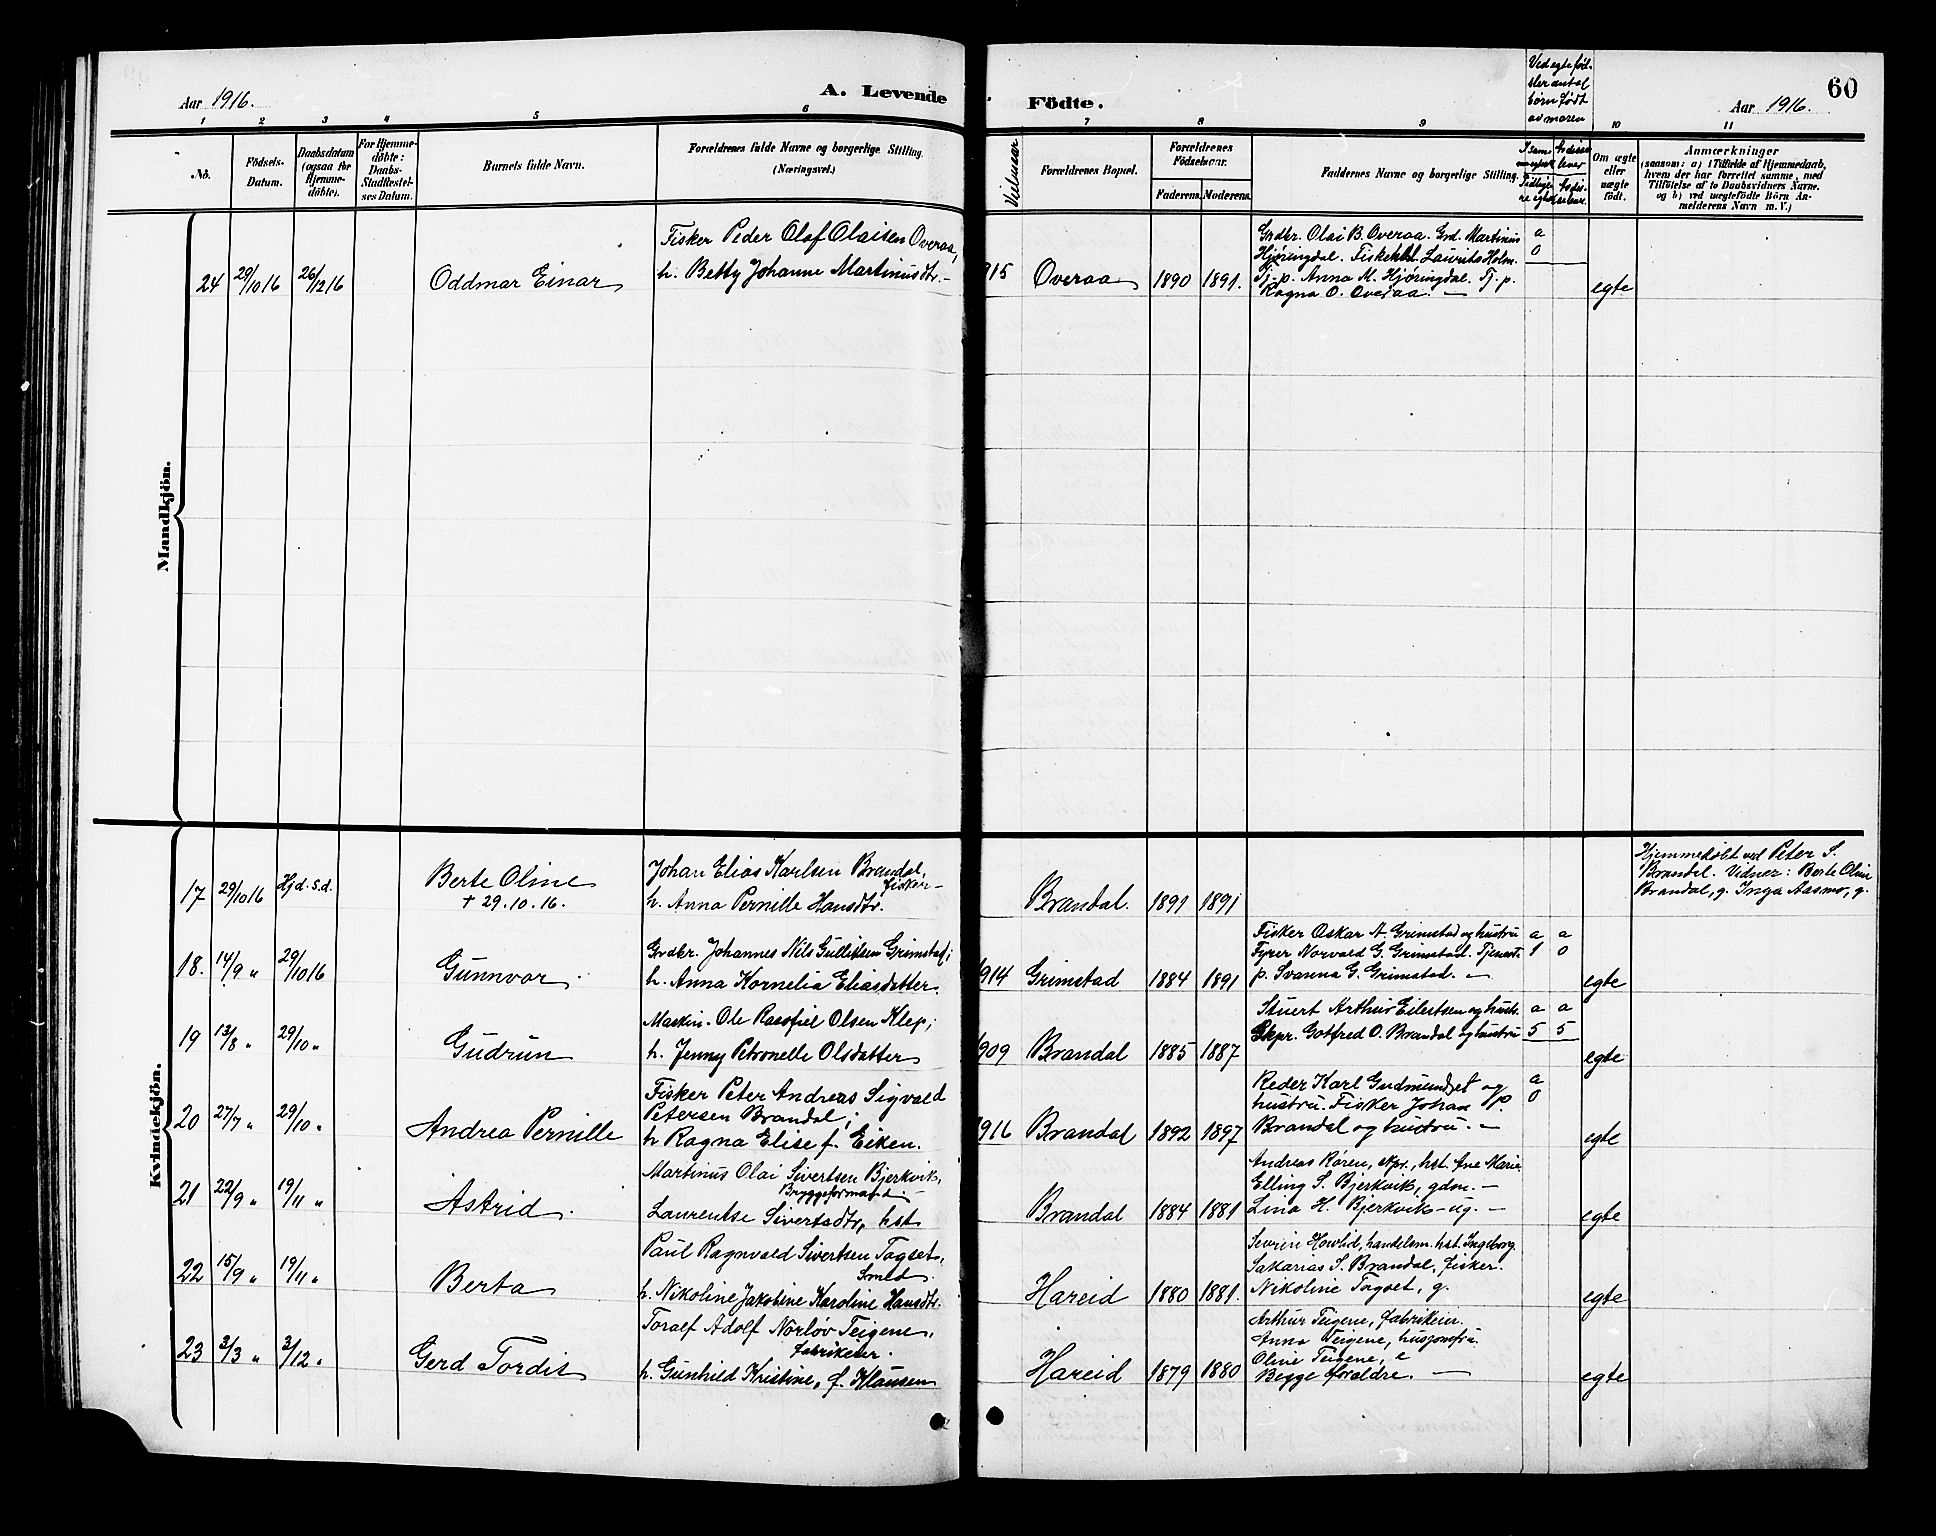 Aar 1916.
A. Levende
Födte.
Aar 1916.
60
Ved egte föd-
sler antal
börn födt
av moren
1 2 3 4 5 6 7 8 9 10 11
No.
Födsels-
Datum.
Daabsdatum
(ogsaa for
Hjemme-
döbte).
For Hjemme-
döbte:
Daabs-
Stadfestel-
ses Datum.
Barnets fulde Navn.
Forældrenes fulde Navne og borgerlige Stilling.
(Næringsvei.)
Vielsesaar
Forældrenes Bopæl.
Forældrenes
Födselsaar.
Faderens. Moderens.
Faddernes Navne og borgerlige Stilling.
Om ægte
eller
uægte
født.
Anmærkninger
(saasom: a) i Tilfælde af Hjemmedaab,
hvem der har forrettet samme, med
Tilføielse af to Daabsvidners Navne.
og b) ved uægtefødte Börn An-
melderens Navn m. V.)
Mandkjön.
Fisker Peder Olaf Olaisen Overaa,
24 29/10 16 26/12 16 Oddmar Einar h. Betty Johanne Martinusdtr.
915 Overaa 1890 1891.
Grdbr. Olai B. Overaa. Grd. Martinus
Hjøringdal. Laurits Holm.
Tj. p. Anna M. Hjøringdal. Tj. p.
Ragna O. Overaa.
a
0
egte
Kvindekjön.
17 29/10 16 Hjd. s.d. Berte Oline
+ 29.10.16.
Johan Elias Karlsen Brandal,
fisker
h. Anna Pernille Hansdtr.
Brandal. 1891 1891
Hjemmedöbt ved Peter S.
Brandal. Vidner: Berte Oline
Brandal, g. Inga Aasmo, g.
18. 14/9 " 29/10 16 Gunnvor.
Grdbr. Johannes Nils Gulliksen Grimstad;
h. Anna Kornelia Eliasdatter.
1914 Grimstad 1884 1891
Fisker Oskar A. Grimstad og hustru
Fyrer Norvald G. Grimstad. Tjenest-
p. Svanna G. Grimstad.
a a
1 0
egte
19 13/8 " 29/10 " Gudrun
Maskin. Ole Rasofiel Olsen Klep;
h. Jenny Petronelle Olsdatter
909 Brandal 1885 1887
Stuert Arthur Eilertsen og hust.
Skpr. Gotfred O. Brandal og hustru
a a
5 5
egte
20 27/7 " 29/10 " Andrea Pernille
Fisker Peter Andreas Sigvald
Petersen Brandal;
h. Ragna Elise f. Eiken.
916 Brandal 1892 1897
Reder Karl Gudmundset og
hustru. Fisker Johan P.
Brandal og hustru.
a
0
egte
21 22/9 " 19/11 " Astrid.
Martinus Olai Sivertsen Bjerkvik,
Bryggeformand.
Laurentse Sivertsdtr, hst
Brandal 1884 1881
Andreas Røren, skpr., hst. Ane Marie
Elling S. Bjerkvik, gdm.
Lina H. Bjerkvik - ug.
egte
22 15/9 " 19/11 " Berta
Paul Ragnvald Sivertsen Tagset,
Smed.
h. Nikoline Jakobine Karoline Hansdtr.
Hareid 1880 1881.
Severin Hovlid, handelsm. hst. Ingeborg.
Sakarias S. Brandal, fisker.
Nikoline Tagset, g.
egte
23 3/3 " 3/12 " Gerd Tordis
Toralf Adolf Norløv Teigene,
fabrikeier.
h. Gunhild Kristine, f. Klausen
Hareid 1879 1880
Arthur Teigene, fabrikeier.
Anna Teigene, husjomfru
Oline Teigene, e
Begge foræ­ldre.
egte